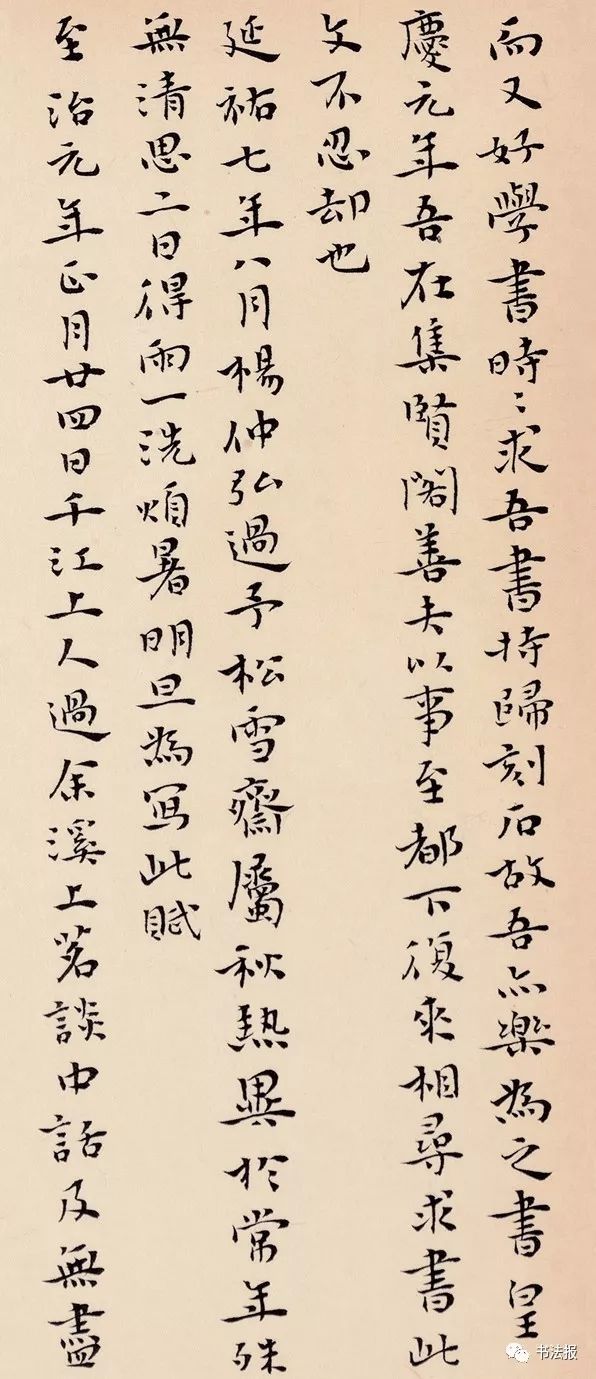 而又好學書時〻求吾書持歸刻石故吾亦樂為之書皇
慶元年吾在集賢閣善夫以事至都下復來相尋求書此
文不忍却也
延祐七年八月楊仲弘過予松雪齋屬秋熱異於常年殊
無清思二日得雨一洗煩暑明旦為寫此賦
至治元年正月廿四日千江上人過余溪上茗談中話及無盡
书法报